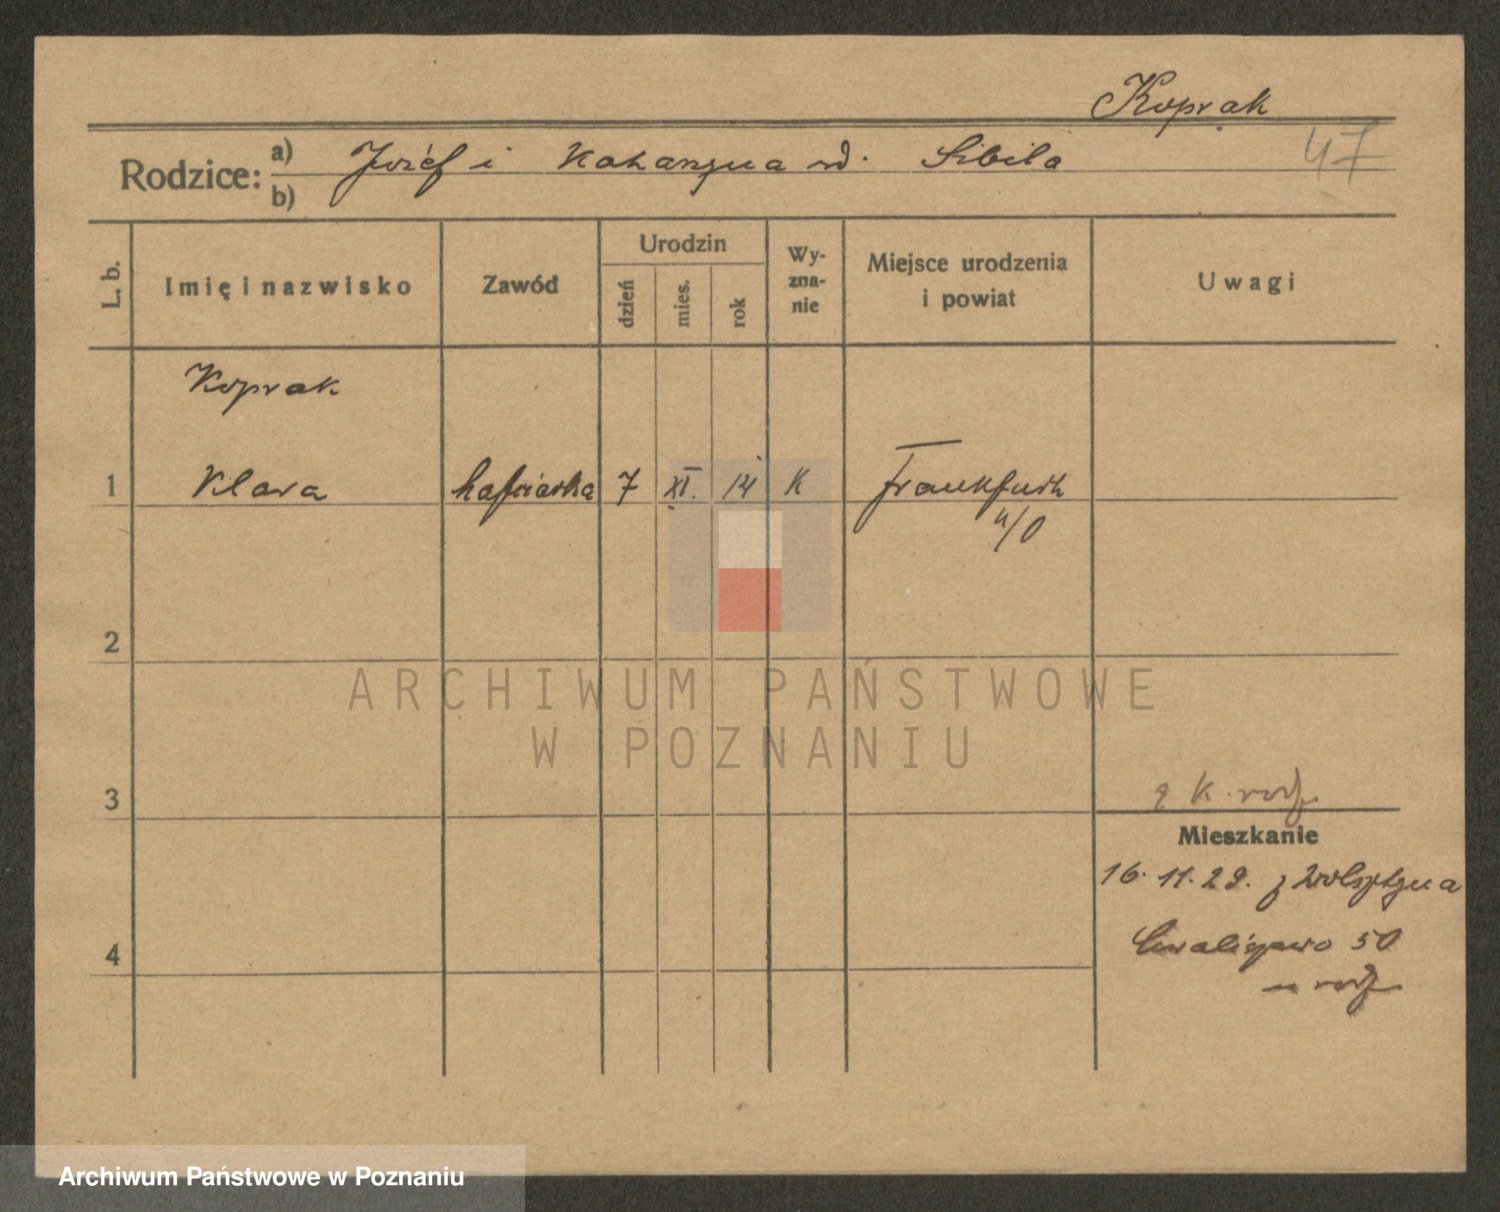 Koprak
Rodzice: a) Józef i Katarzyna rd. Sibila 47
b)
L. b. Imię i nazwisko Zawód Urodzin dzień mies. rok Wy-zna-nie Miejsce urodzenia i powiat Uwagi
Koprak
1 Klara hafciarka 7 XI. 14 K Frankfurth
n/O
2
3
k. rodz.
Mieszkanie
16.11.29. z Wolsztyna
50
4
u rodz.
ARCHIWUM PAŃSTWOWE
W POZNANIU
Archiwum Państwowe w Poznaniu